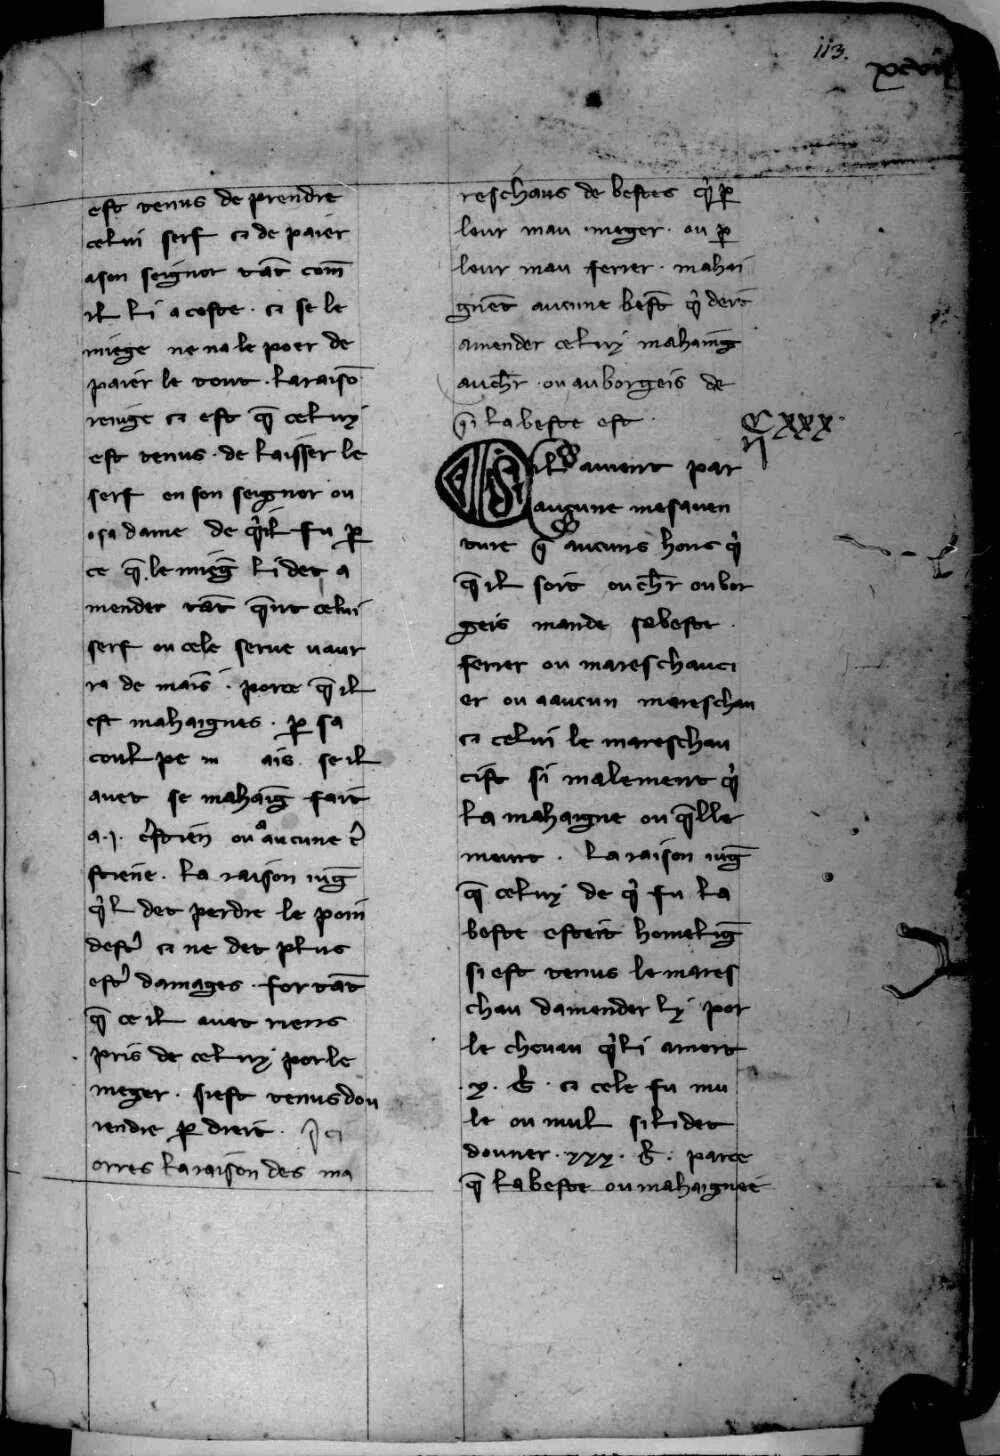 113.
xcvii
est tenus de prendre
celui serf ⁊ de paier
ason seignor tāt com̄
il li a coste · ⁊ se le
miege ne na le poer de
paier le tout · la raisō
reuige ⁊ est q̄ celuy
est tenus · de laisser le
serf en son seignor ou
asa dame de q̇il fu ꝑ
ce q̄ le mieḡ li det a
mender tāt q̄nt celui
serf ou cele serue uaur
ra de mais̄ · porce q̄ il
est mahaignes · ꝑ sa
coulpe m ais se il
auet se mahaiḡ fait
a · j · c̓stien ou a aucune c̓
stiene · la raison iuḡ
q̓l det perdre le poin
dest̓ ⁊ ne det plus
est̓ damages · for tāt
q̄ ce il auet riens
pris de celuy por le
meger · si est tenus dou
rendre ꝑ dreit · Ici
orres la raison des ma
reschaus de bestes q̓ ꝑ
lour mau meger · ou ꝑ
lour mau ferrer · mahai
gnēt aucune best̄ q̓ deit
amender celuy mahaing
au ch̄r · ou au borgeis de
q̓ la beste est ·
Cxxx
ij
Sil auient par
aucune mesauen
ture q̄ aucuns hons q̓
q̄ il soit ou ch̄r ou bor
geis mande sa beste ·
ferrer ou mareschauci
er ou a aucun mareschau
⁊ celui le mareschau
cist si malement q̓
la mahaigne ou q̄lle
meurt · la raison iuḡ
q̄ celuy de q̓ fu la
beste esteit home liḡ
si est tenus le mares
chau damender ly por
le cheuau q̓ li amort
· x · b̄ · ⁊ cele fu mu
le ou mul si li det
donner · xxx · b̄ · parce
q̄ la beste ou mahaignee